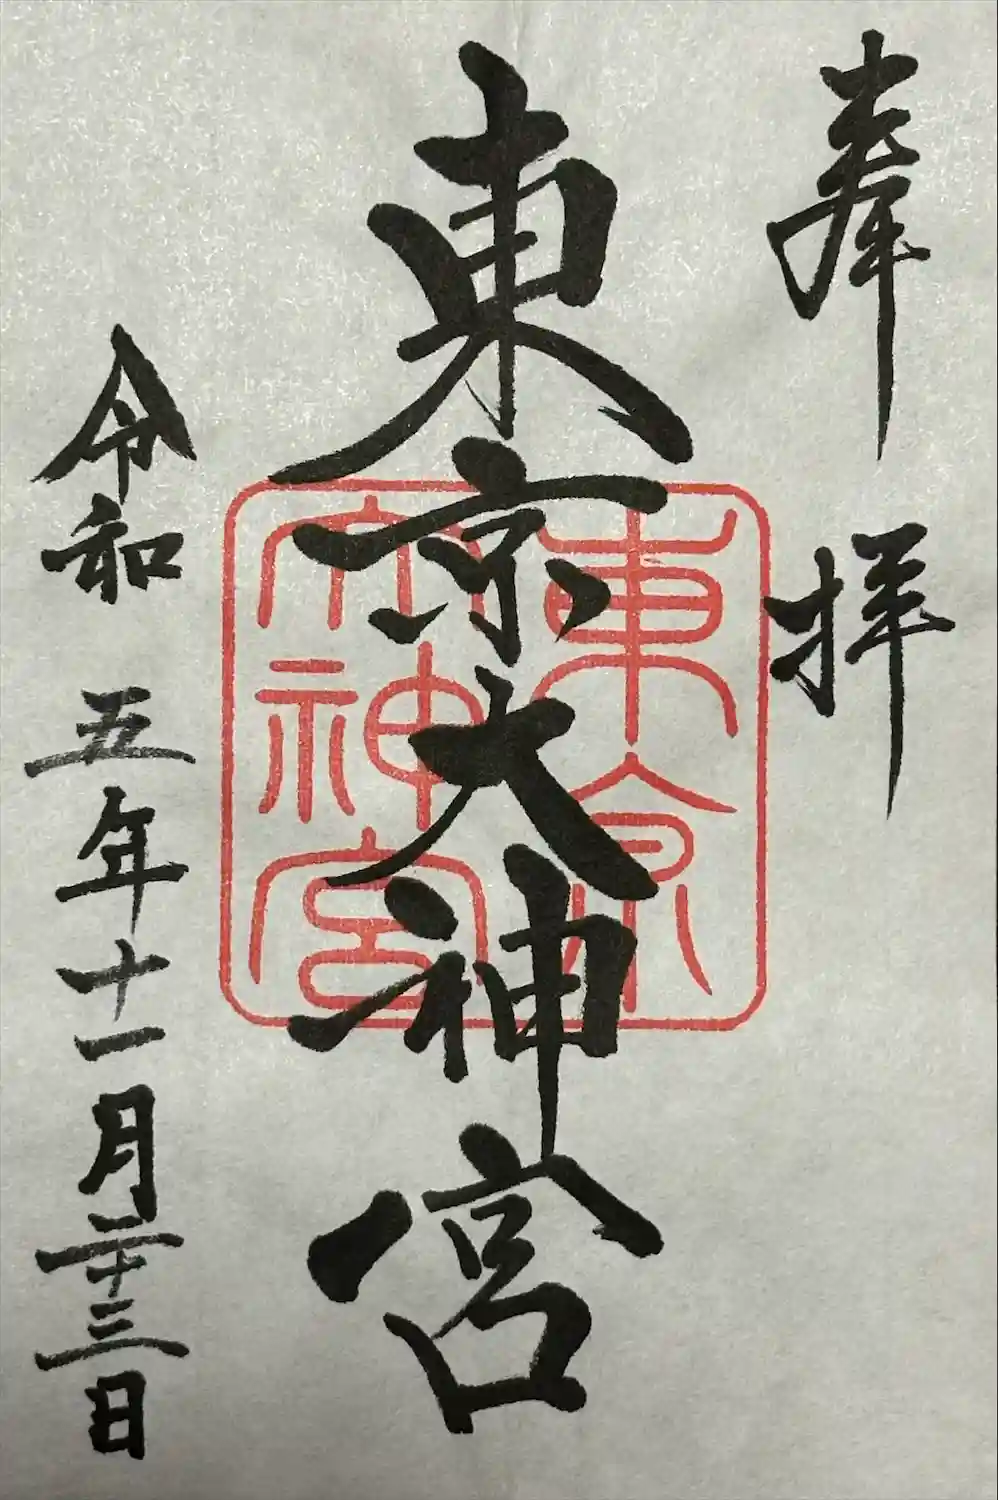 奉拝
東京大神宮
東京
大神宮
令和五年十一月二十三日